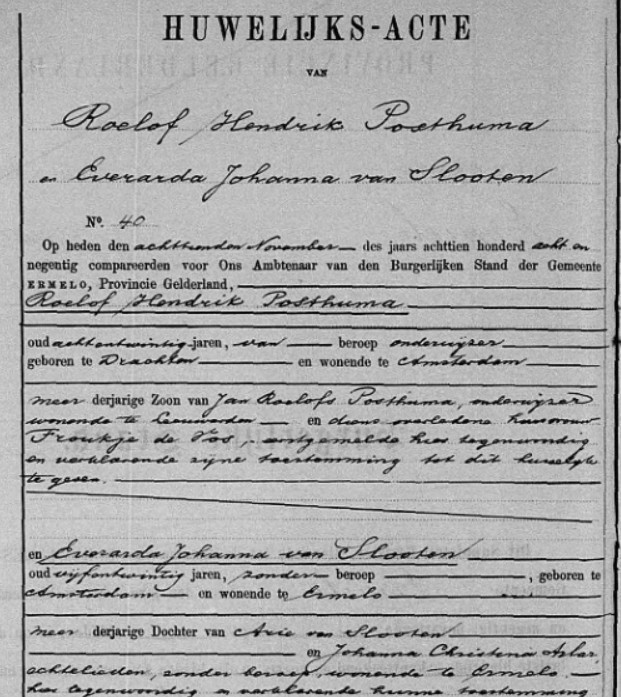 HUWELIJKS-ACTE
VAN
Roelof Hendrik Posthuma
en Everarda Johanna van Slooten
No. 40
Op heden den achttienden November des jaars achttien honderd acht en
negentig compareerden voor Ons Ambtenaar van den Burgerlijken Stand der Gemeente
ERMELO, Provincie Gelderland,
Roelof Hendrik Posthuma
oud achtentwintig jaren, van beroep onderwijzer
geboren te Drachten en wonende te Amsterdam
meer derjarige Zoon van Jan Roelofs Posthuma, onderwijzer
wonende te Leeuwarden en diens overledene huisvrouw
Froukje de Vos, eerstgemelde hier tegenwoordig
en verklarende zijne toestemming tot dit huwelijk
te geven.
en Everarda Johanna van Slooten
oud vijfentwintig jaren, zonder beroep , geboren te
Amsterdam en wonende te Ermelo
meer derjarige Dochter van Arie van Slooten
en Johanna Christina
echtelieden, zonder beroep, wonende te Ermelo
hier tegenwoordig en verklarende hunne toestemming